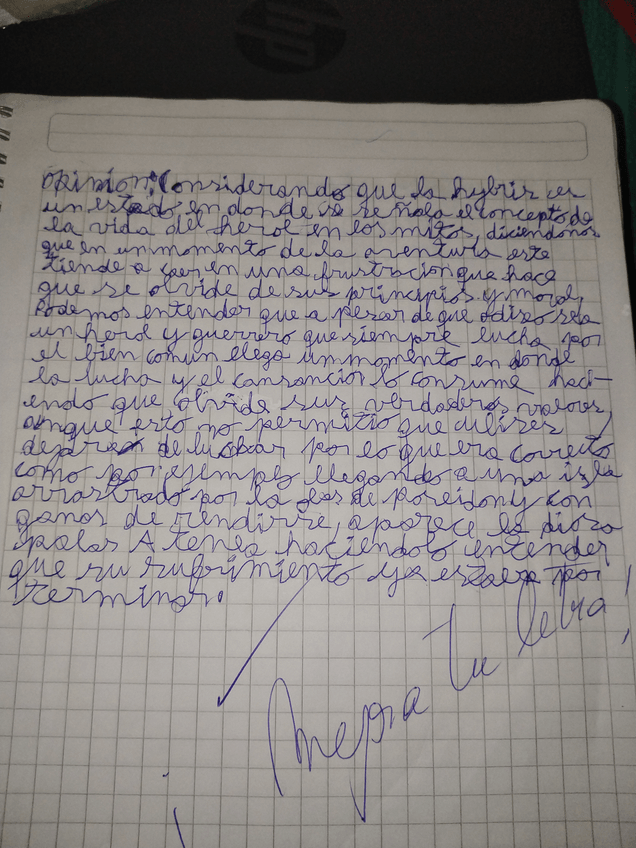 hp
opinion: Considerando que la hybris es
un estado en donde se señala el concepto de
la vida del heroe en los mitos, diciendonos
que en un momento de la aventura este
tiende a caer en una frustracion que hace
que se olvide de sus principios y moral,
Podemos entender que a pesar de que odiseo sea
un heroe y guerrero que siempre lucha por
el bien comun llega un momento en donde
la lucha y el cansancio lo consume haci-
endo que olvide sus verdaderos valores,
aunque esto no permitio que ulises
dejara de luchar por lo que era correcto
como por ejemplo llegando a una isla
arrastrado por la de poseidon y con
ganas de rendirse, aparece la diosa
palas Atenea haciendolo entender
que su sufrimiento ya estaba por
terminar.
¡Mejora tu letra!